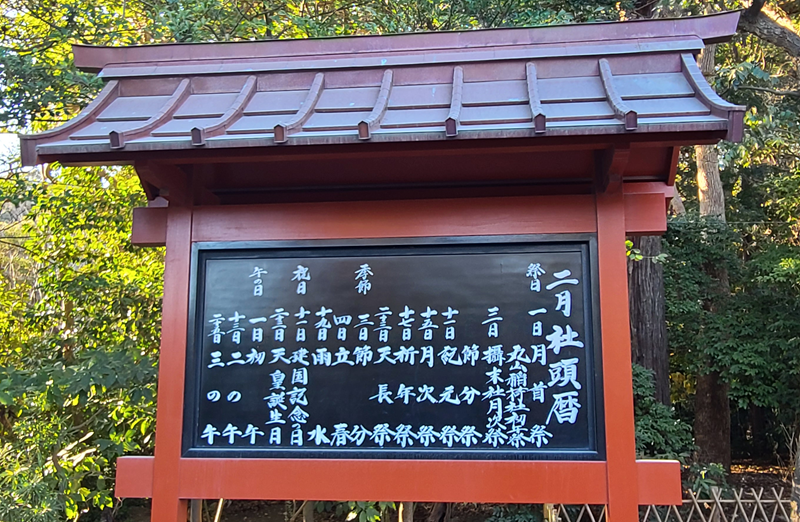 二月社頭暦
祭日 一日 月首祭
丸山稲荷社初午祭
三日 攝末社月次祭
節分祭
十一日 紀元祭
十五日 月次祭
十七日 祈年祭
二十三日 天長祭
季節 三日 節分
四日 立春
十九日 雨水
祝日 十一日 建国記念の日
二十三日 天皇誕生日
午の日 一日 初午
十三日 二の午
二十五日 三の午